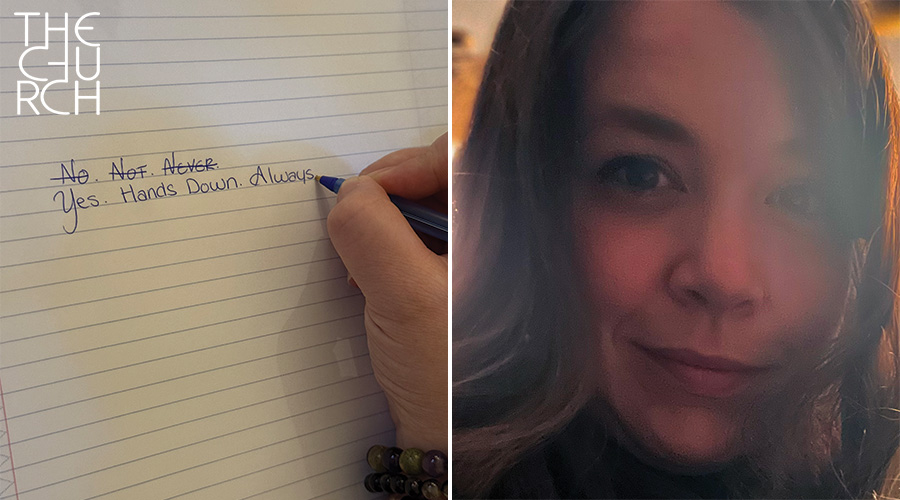 THE
CHU
RCH
No. Not. Never.
Yes. Hands Down. Always.